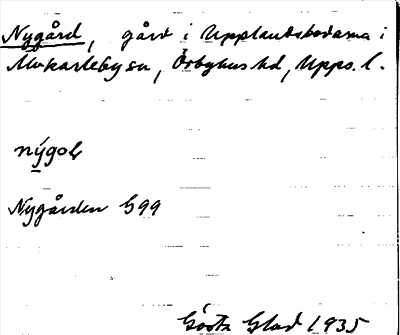 Nygård, gård i Upplandsbodarna i
Älvkarleby sn, Örbyhus hd, Upps. l.
nýgoɭ
Nygården G99
Gösta Glad 1935